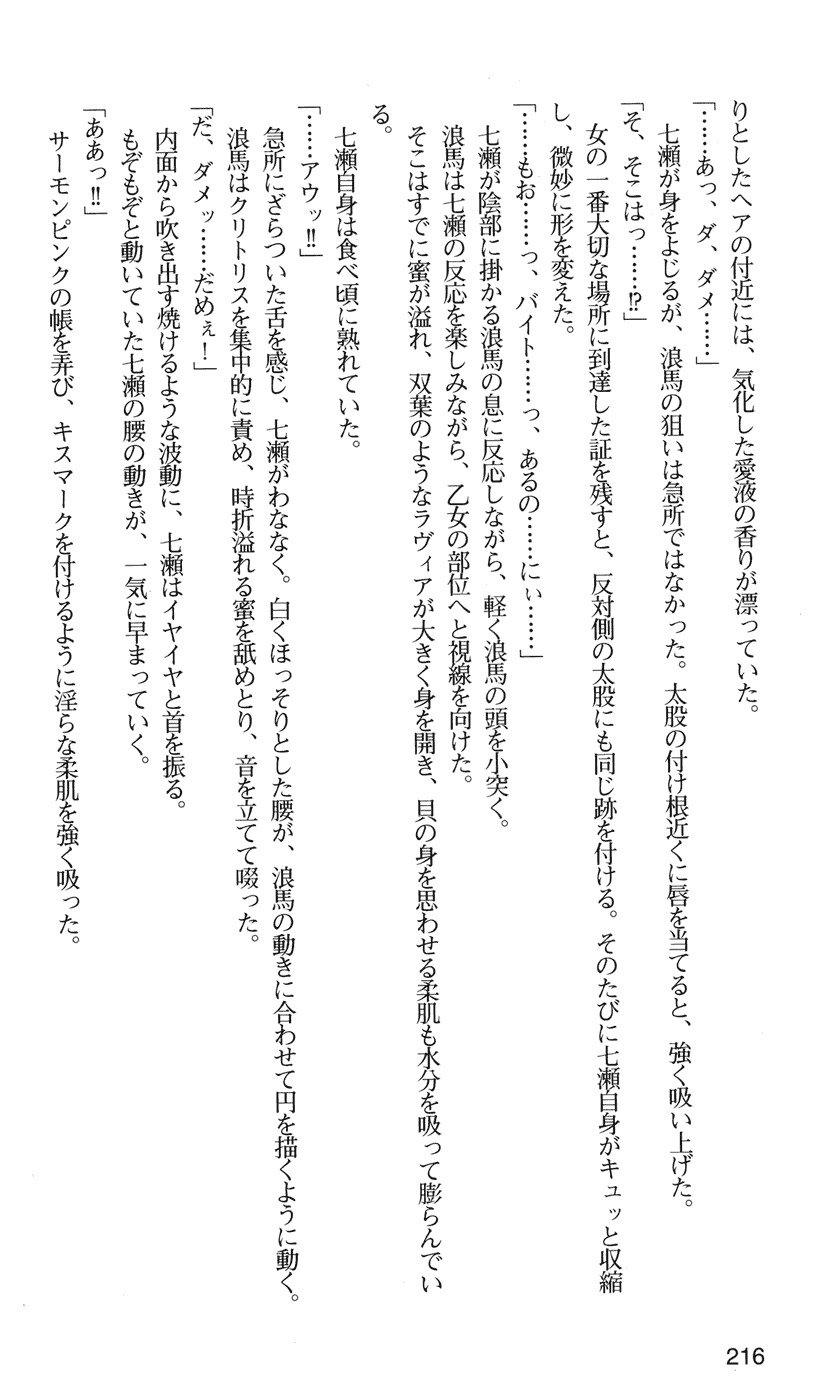 りとしたヘアの付近には、気化した愛液の香りが漂っていた。
「……あっ、ダ、ダメ……」
七瀬が身をよじるが、浪馬の狙いは急所ではなかった。太股の付け根近くに唇を当てると、強く吸い上げた。
「そ、そこはっ……⁉」
女の一番大切な場所に到達した証を残すと、反対側の太股にも同じ跡を付ける。そのたびに七瀬自身がキュッと収縮
し、微妙に形を変えた。
「……もお……っ、バイト……っ、あるの……にぃ……」
七瀬が陰部に掛かる浪馬の息に反応しながら、軽く浪馬の頭を小突く。
浪馬は七瀬の反応を楽しみながら、乙女の部位へと視線を向けた。
そこはすでに蜜が溢れ、双葉のようなラヴィアが大きく身を開き、貝の身を思わせる柔肌も水分を吸って膨らんでい
る。
七瀬自身は食べ頃に熟れていた。
「……アウッ‼」
急所にざらついた舌を感じ、七瀬がわななく。白くほっそりとした腰が、浪馬の動きに合わせて円を描くように動く。
浪馬はクリトリスを集中的に責め、時折溢れる蜜を舐めとり、音を立てて啜った。
「だ、ダメッ……だめぇ！」
内面から吹き出す焼けるような波動に、七瀬はイヤイヤと首を振る。
もぞもぞと動いていた七瀬の腰の動きが、一気に早まっていく。
「ああっ‼」
サーモンピンクの帳を弄び、キスマークを付けるように淫らな柔肌を強く吸った。
216